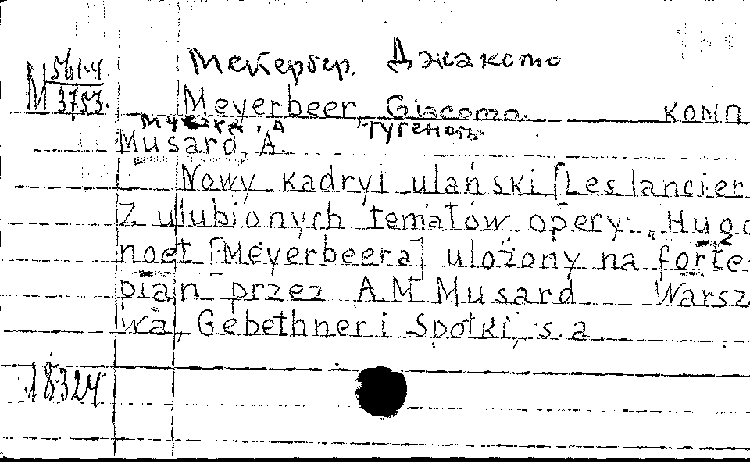 Мейербер, Джакомо
М 561-4
М 3753.
Meyerbeer, Giacomo комп
Мусард, А Гугеноты
Musard, A.
Nowy kadryl ulański [Les lancier
Z ulubionych tematów opery: „Hugo
noet [Meyerbeera] ułożony na forte-
pian przez A.M Musard Warsz
wa, Gebethner i Spółki, s.a
18324